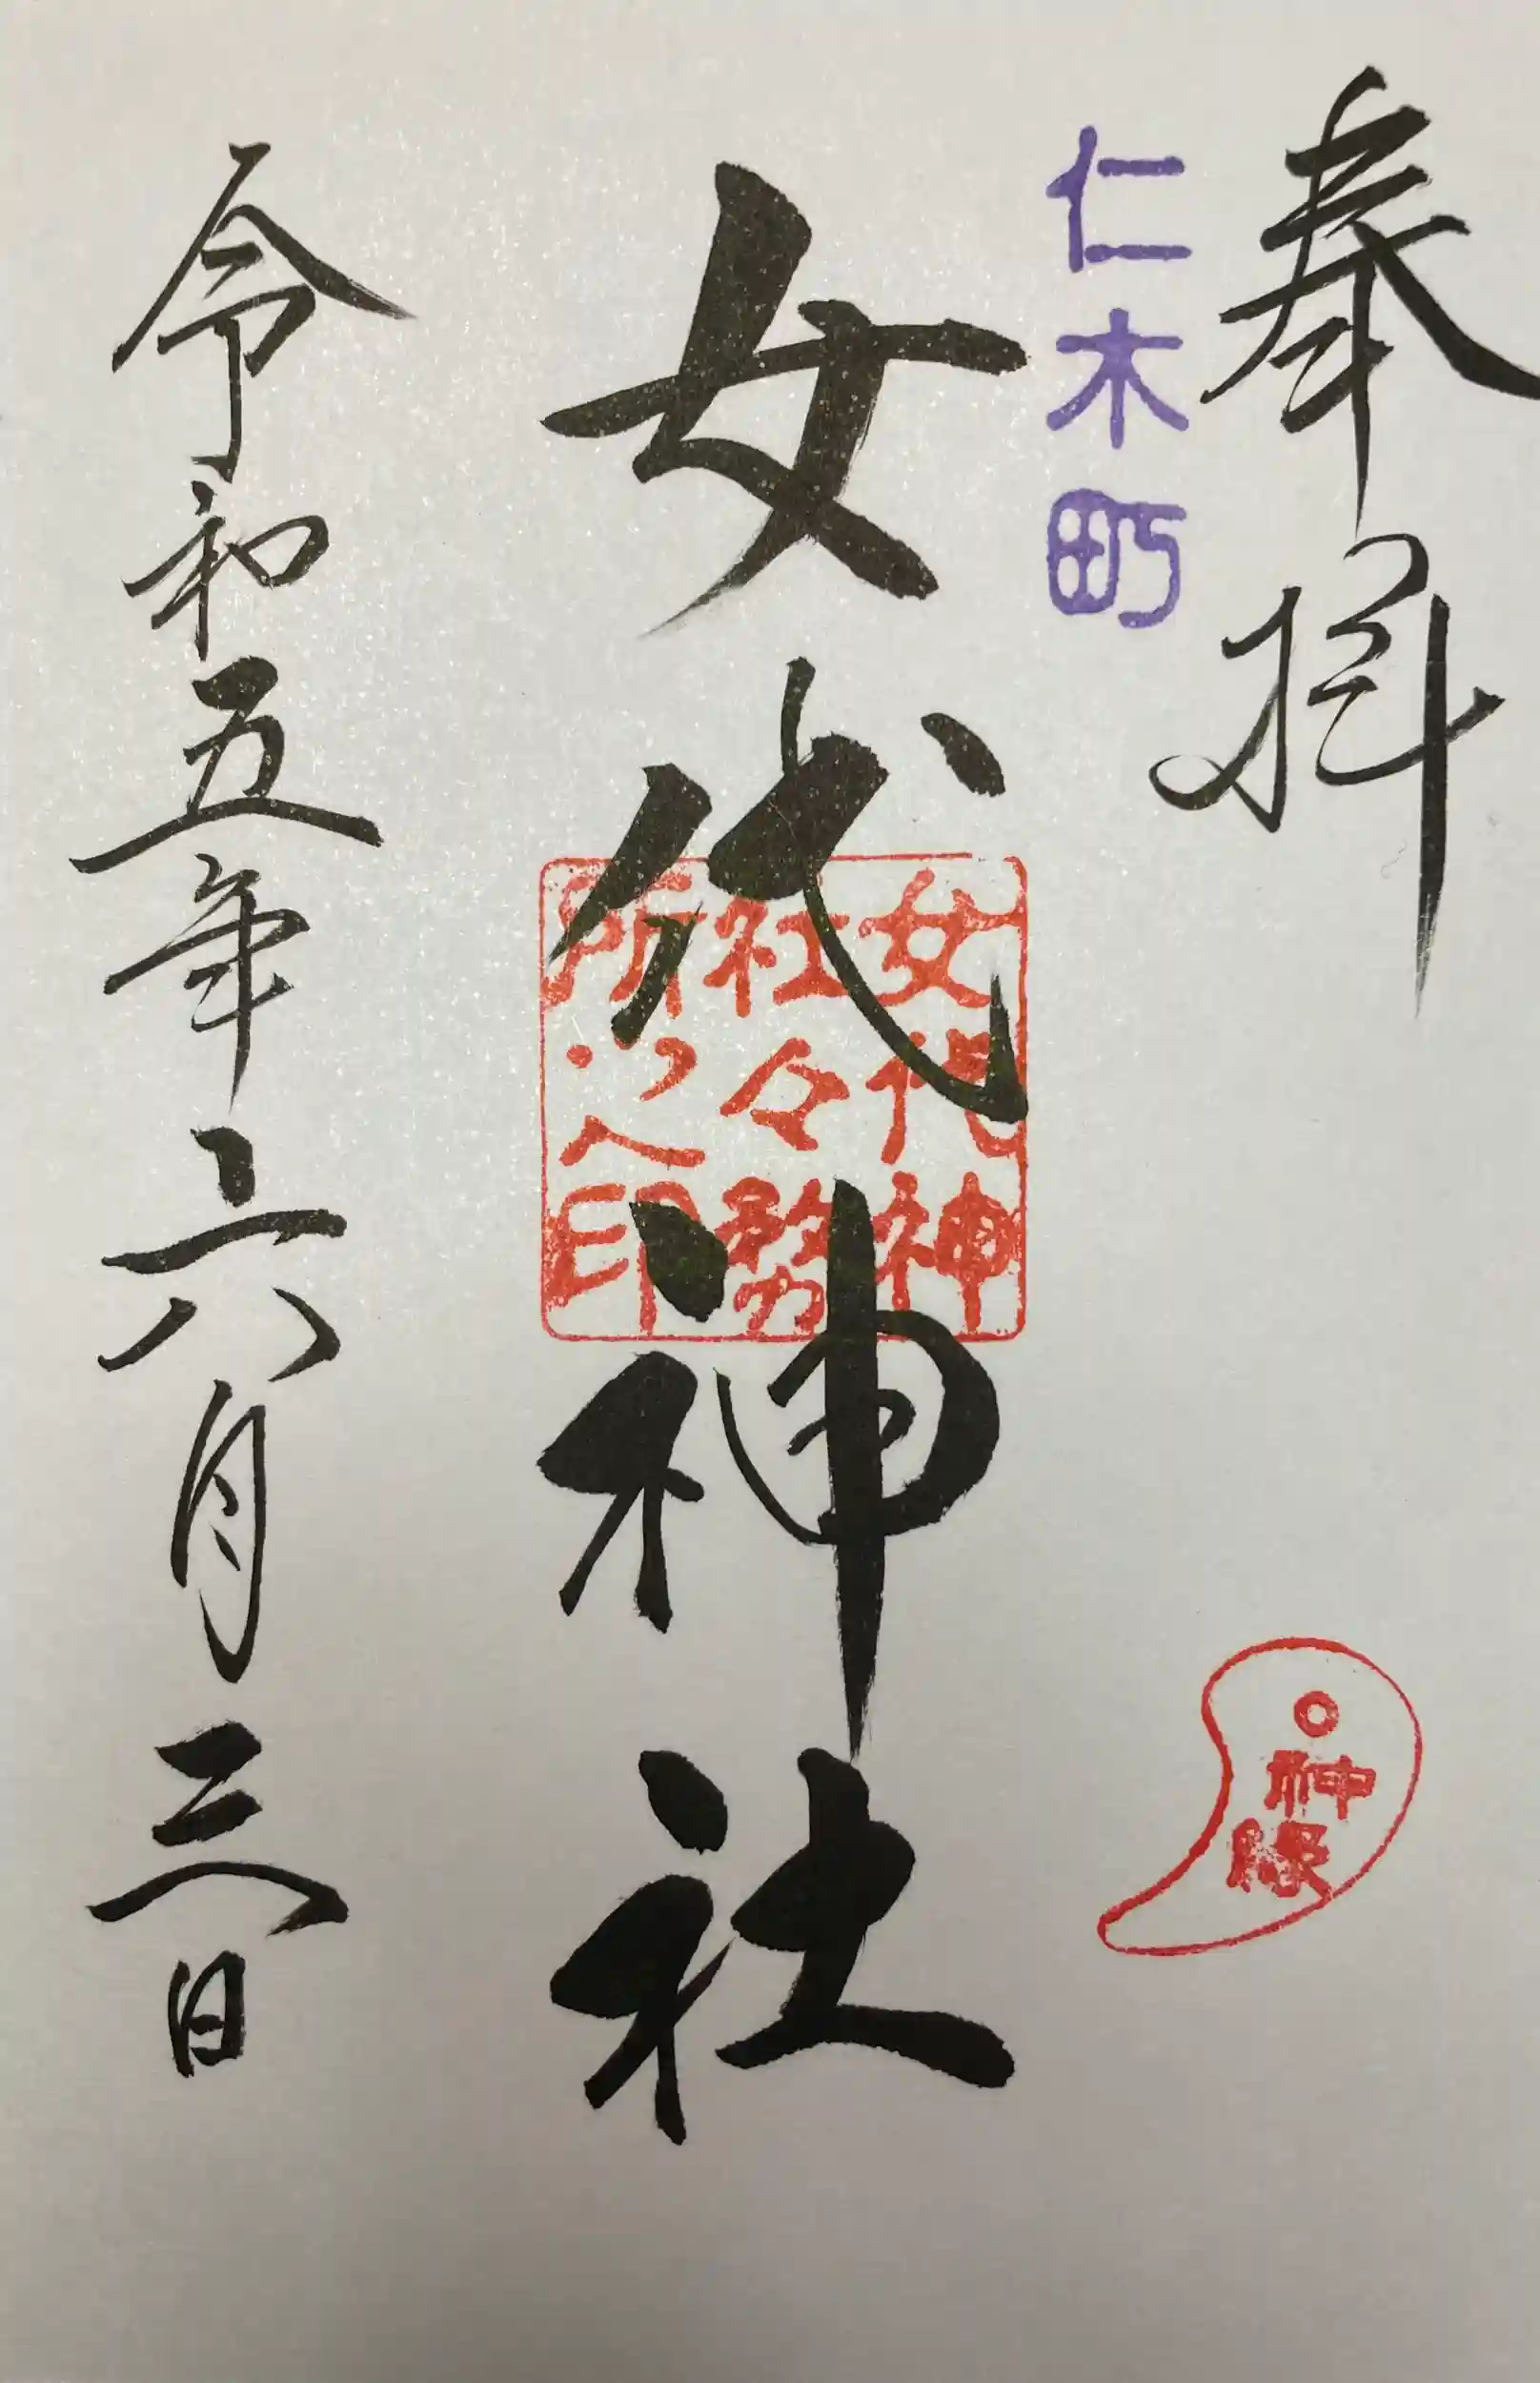 奉拝
仁木町
神縁
女代神社
女代神
社々務
所之印
令和五年六月三日